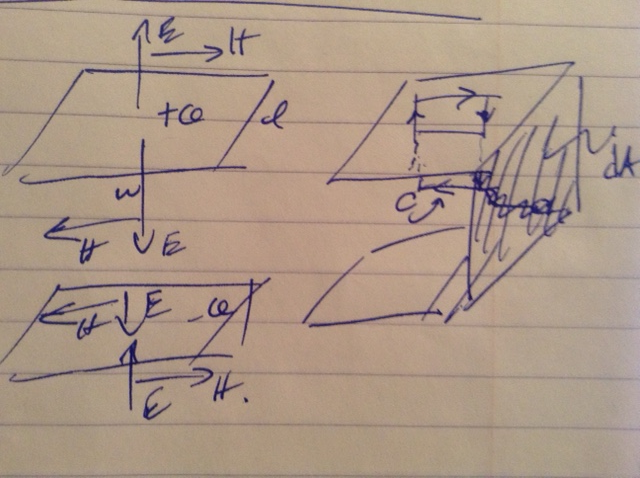 E
H
+Q
l
w
H
E
H
E
-Q
E
H.
C
dA